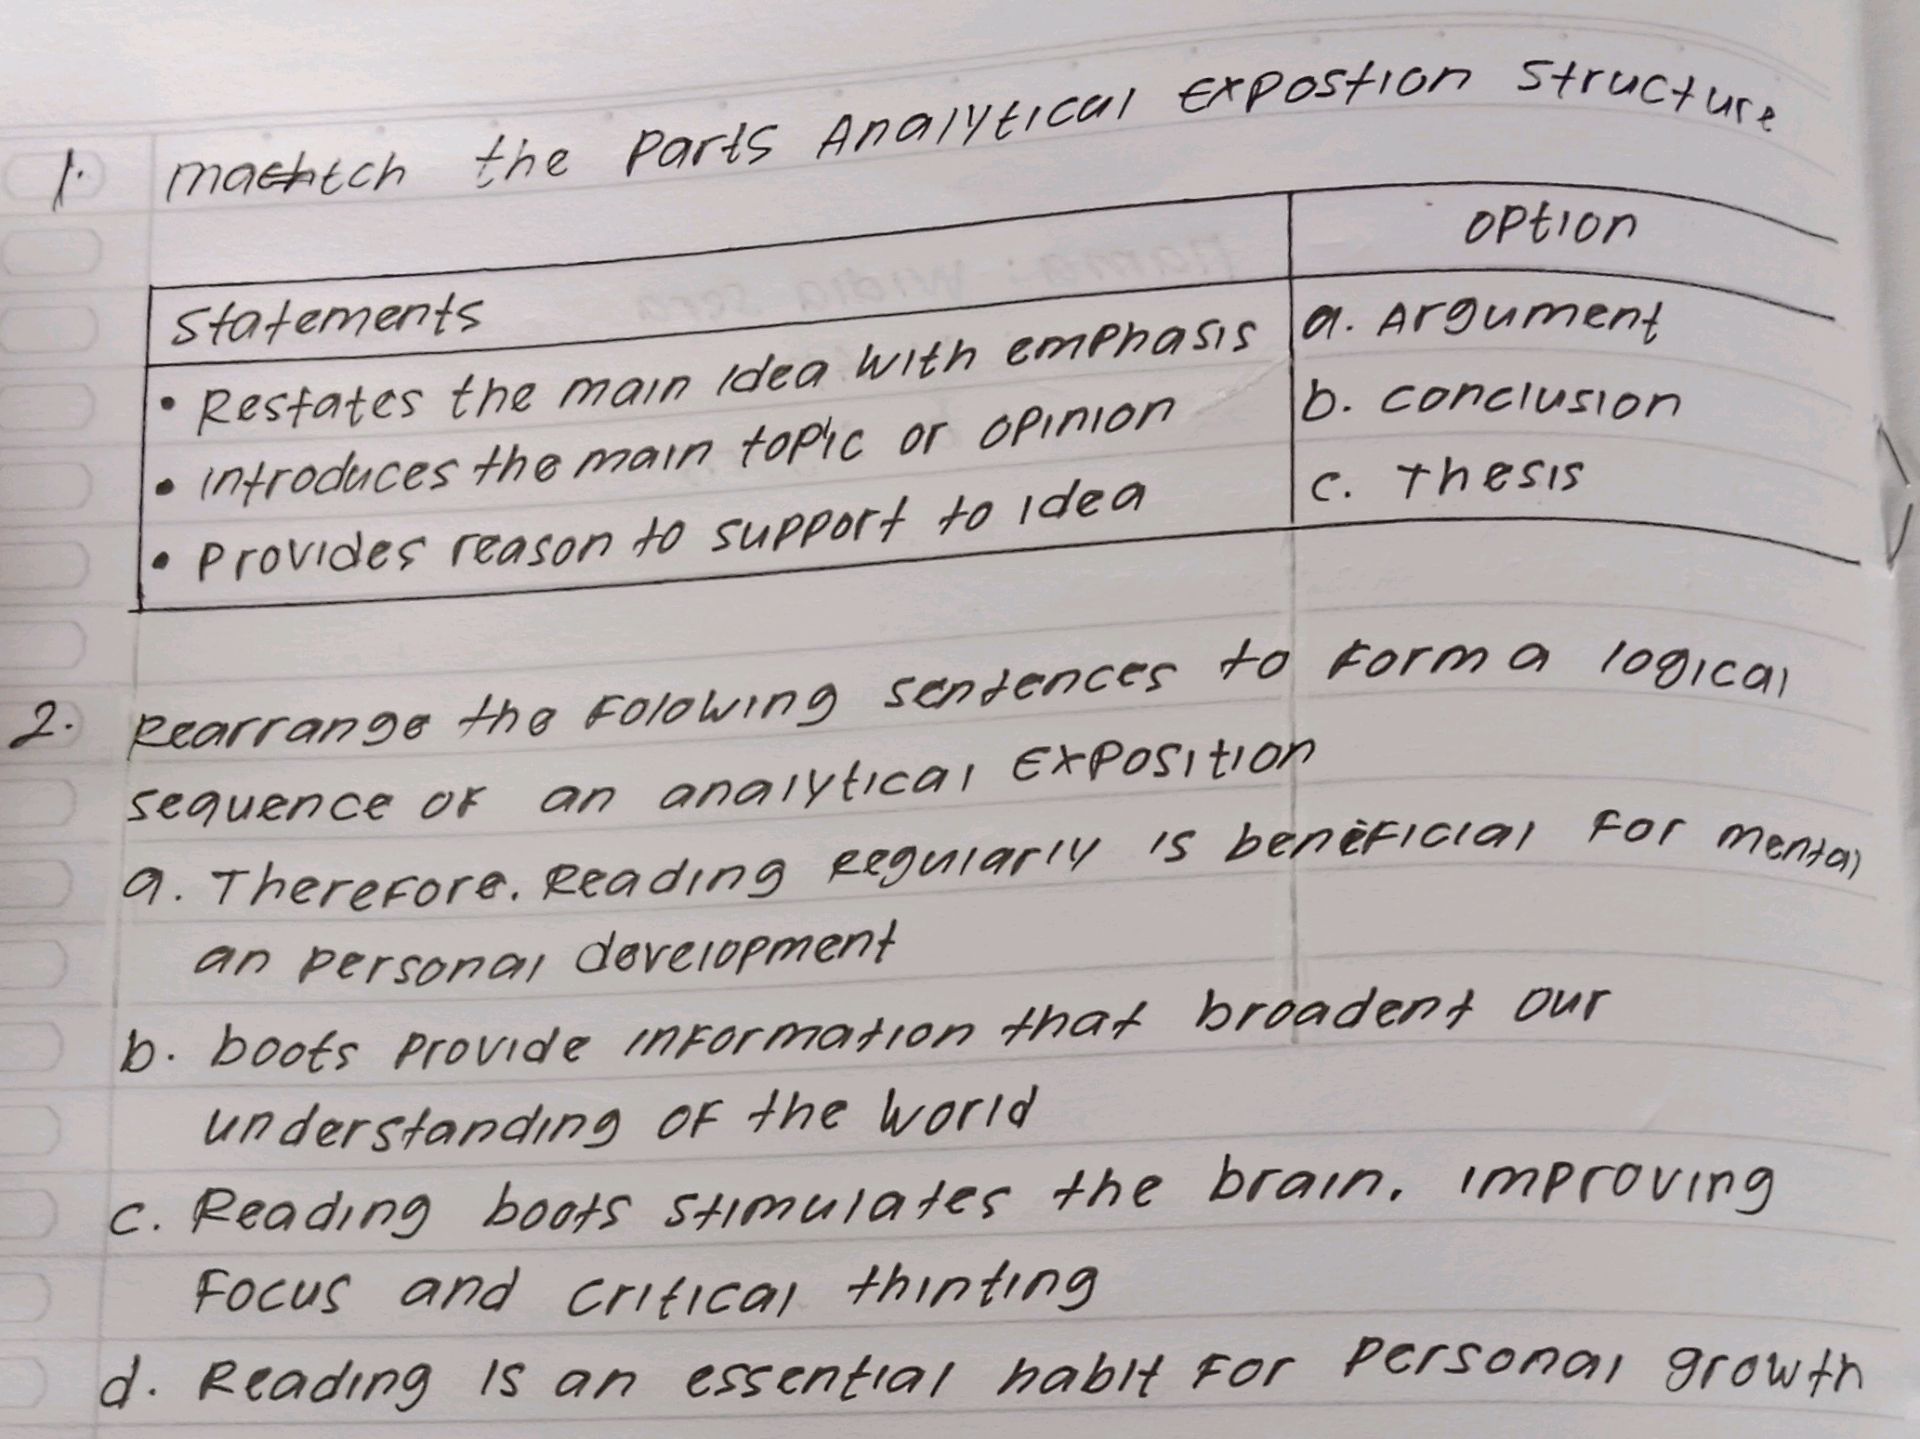 1. match the Parts Analytical Expostion Structure
Statements
option
• Restates the main idea with emphasis
a. Argument
• introduces the main topic or opinion
b. conclusion
• Provides reason to support to idea
c. Thesis
2. Rearrange the Folowing sentences to Form a logical
sequence of an analytical Exposition
a. Therefore. Reading Regularly is beneficial For mental
an personal development
b. boots Provide information that broadent our
understanding of the world
c. Reading boots stimulates the brain. improving
Focus and critical thinting
d. Reading is an essential habit For Personal growth